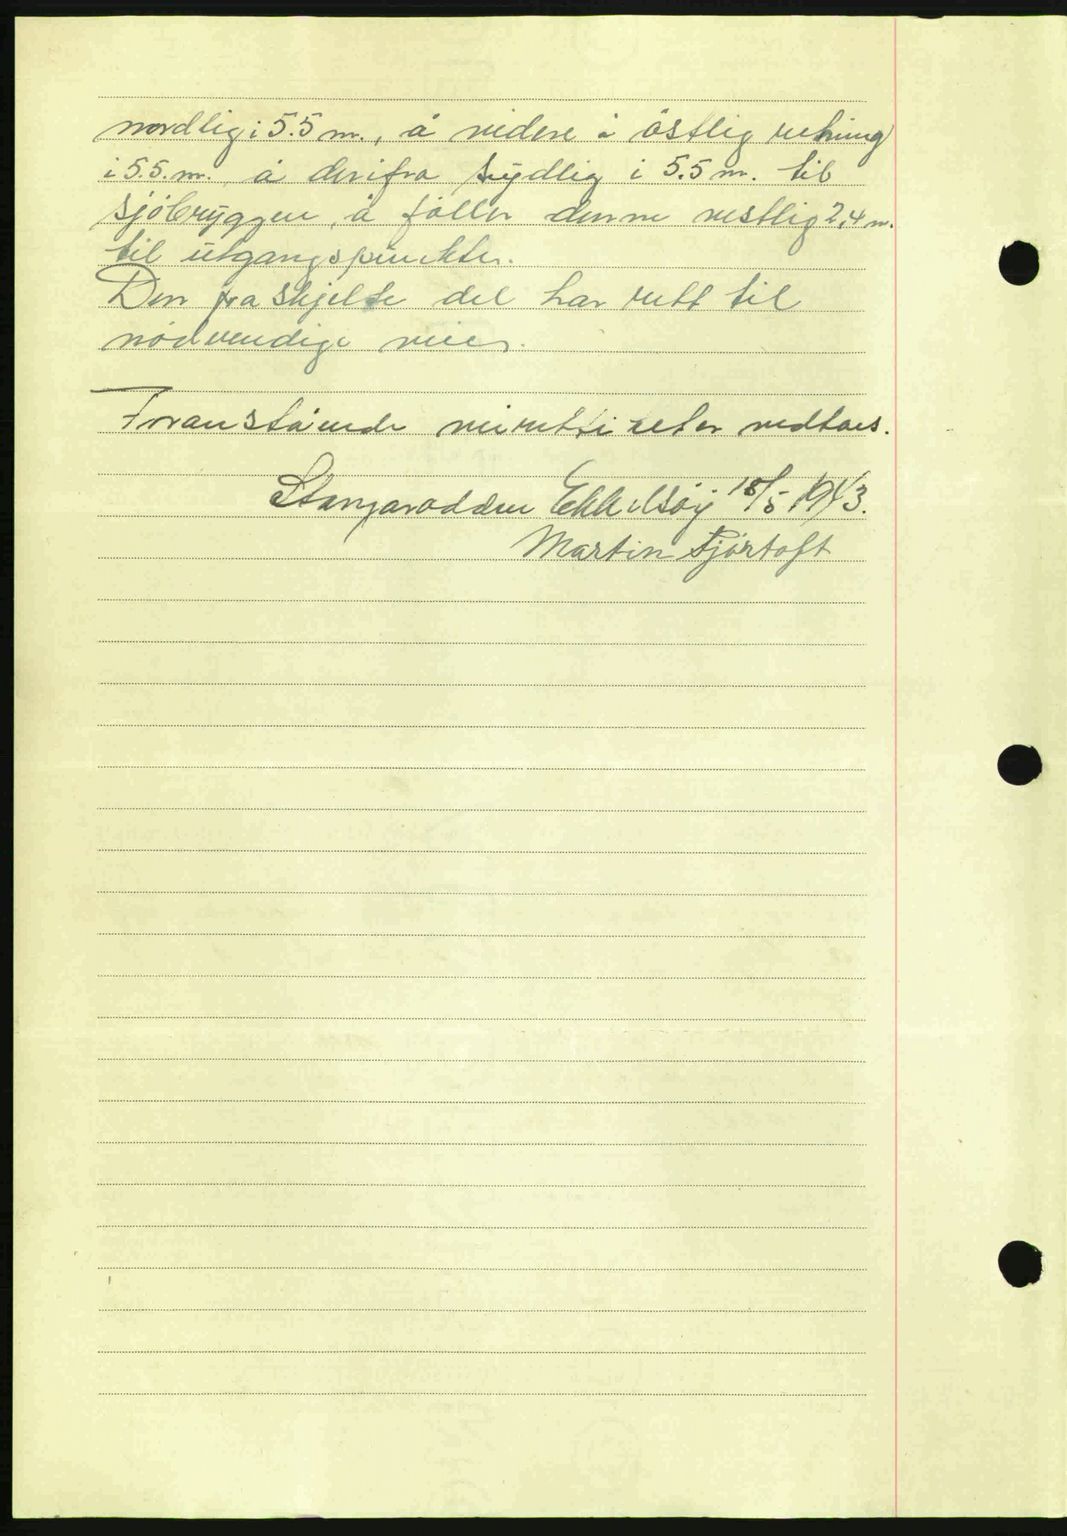 nordlig i 5.5 m., å videre i östlig retning
i 5.5. m. å derifra sÿdlig i 5.5 m. til
sjöbrÿggen, å föller denne vestlig 2,4 m.
til utgangspunkter.
Den fraskjelte del har rett til
nödvendige veier.
Foranstående veirettiheter vedtaes.
Ekkilsöÿ 18/5 1943.
Martin Fjörtoft